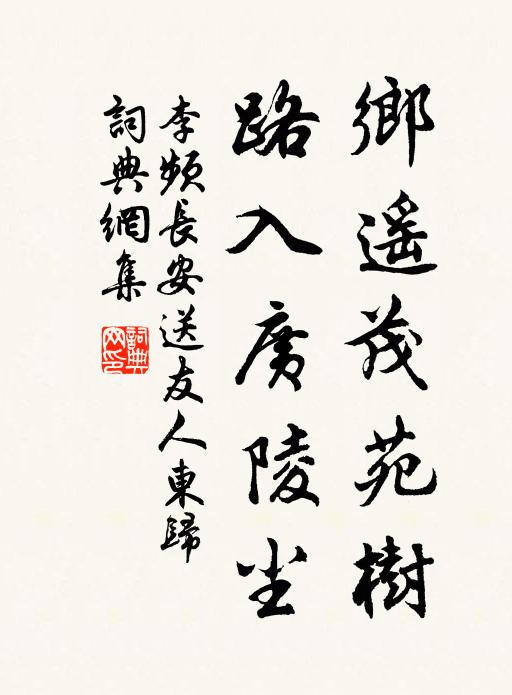 鄉遥茂苑樹
路入廣陵尘
李頻長安送友人東歸
詞典網集
詞典网印